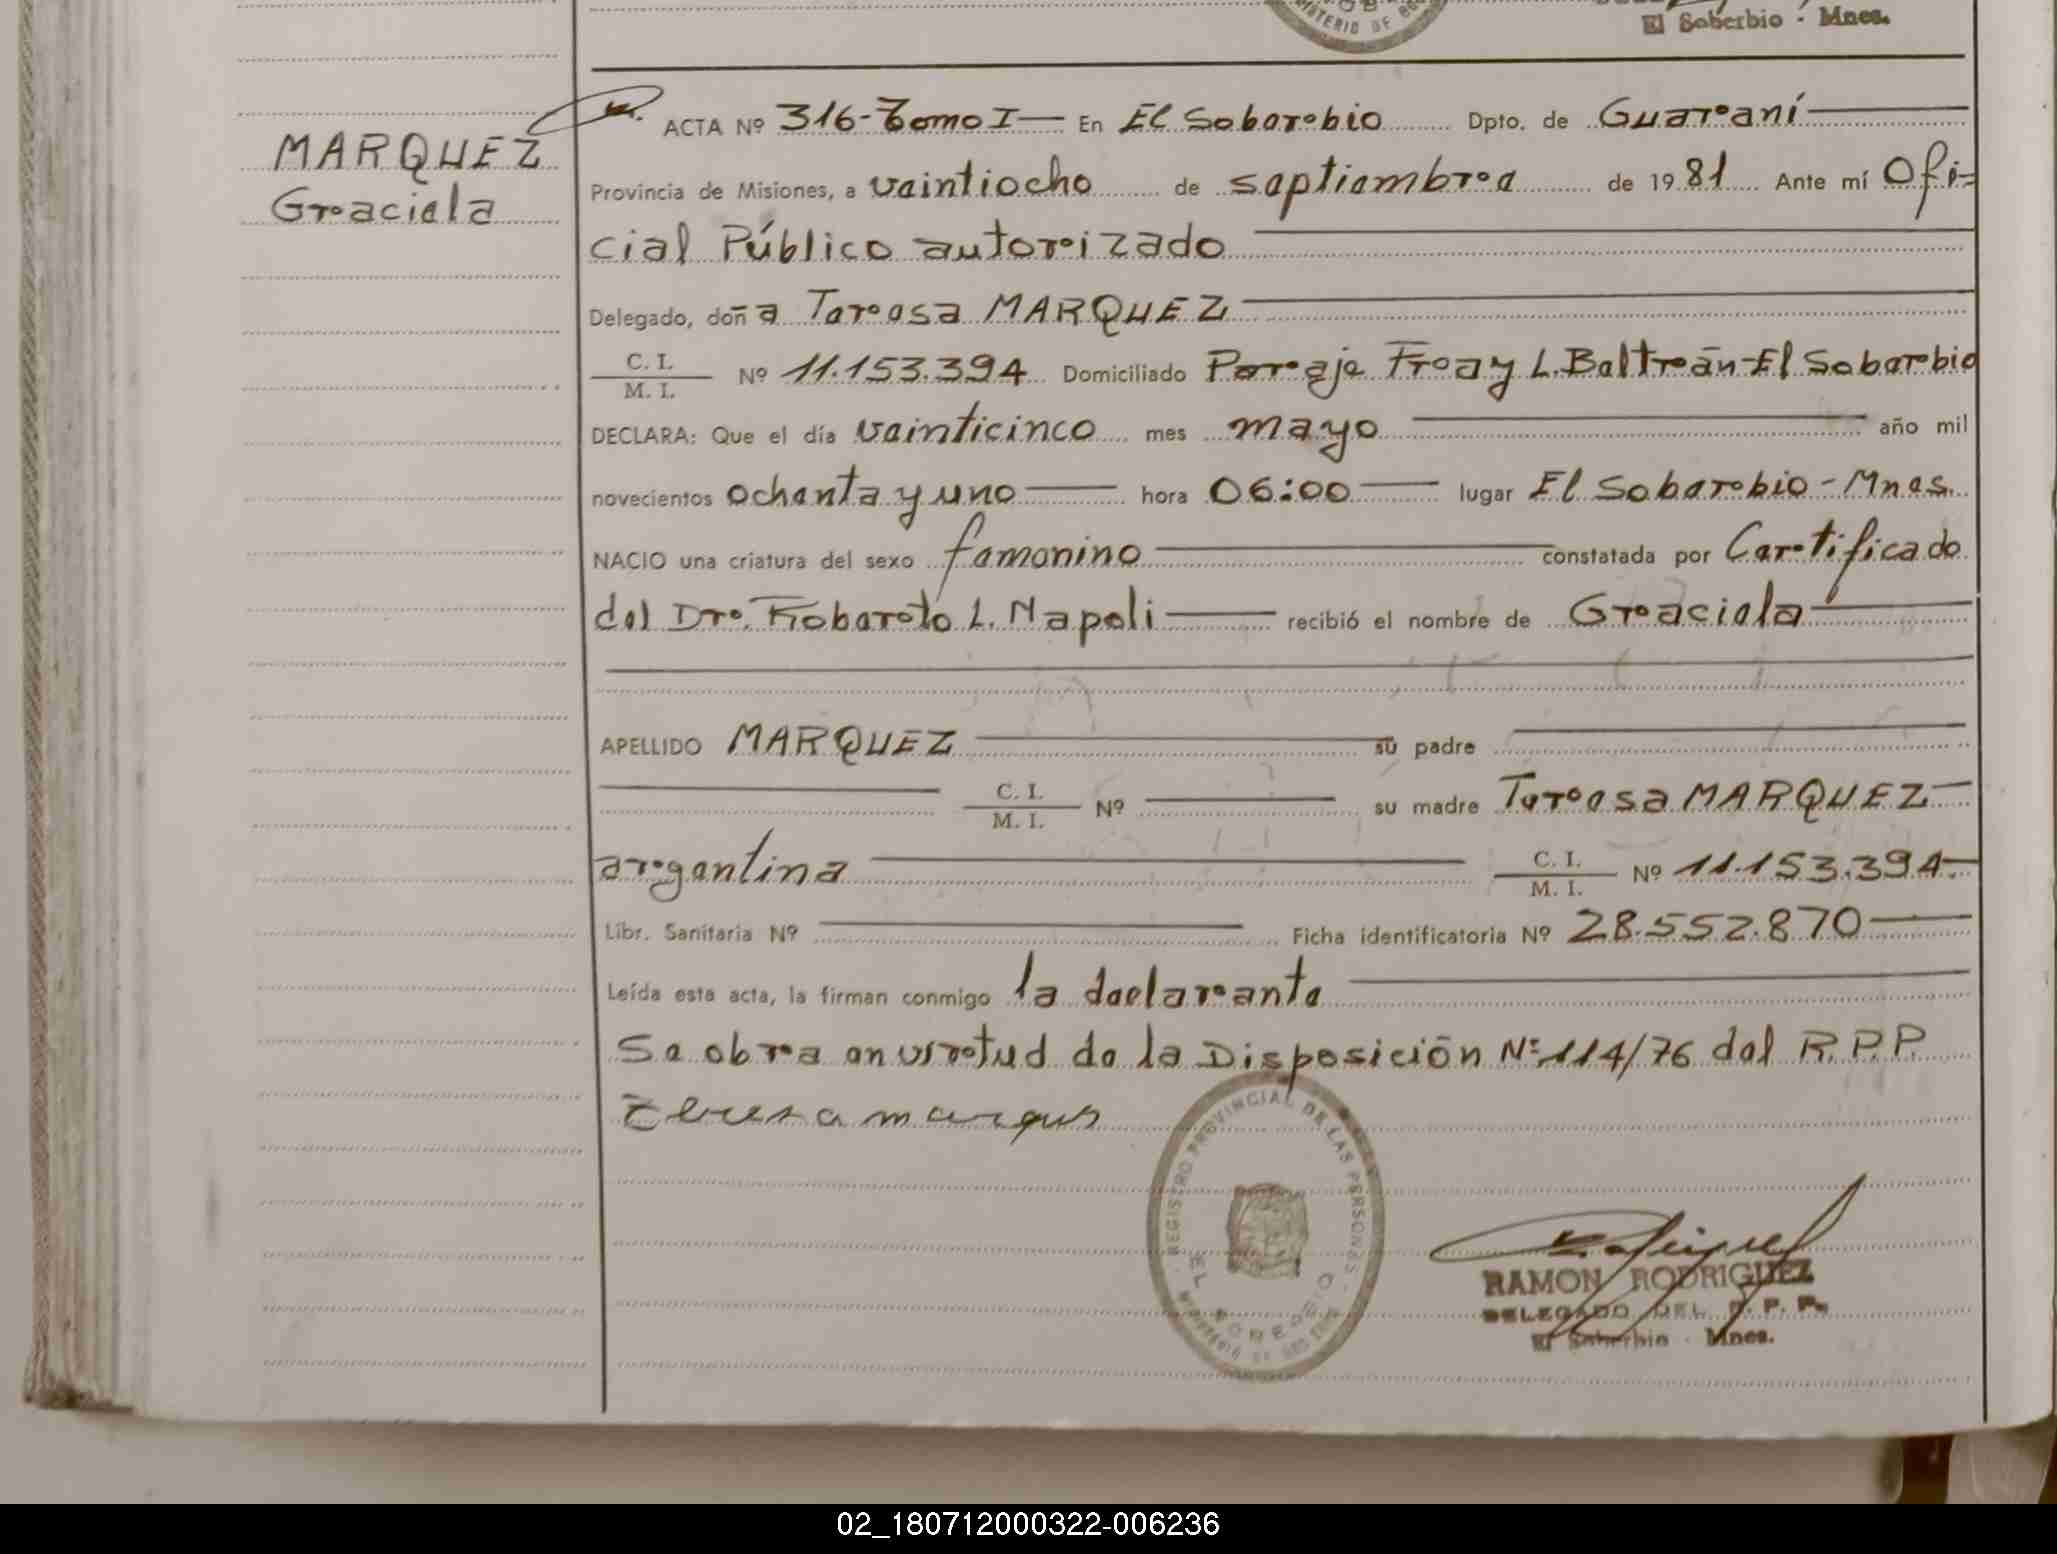 MINISTERIO DE GO
El Soberbio - Mnes.
MARQUEZ
Graciela
ACTA Nº 316-Tomo I — En El Soberbio Dpto. de Guaraní
Provincia de Misiones, a veintiocho de septiembre de 1981 Ante mí Ofi-
cial Público autorizado
Delegado, doña Teresa MARQUEZ
C. I. / M. I. Nº 11.153.394 Domiciliado Paraje Fray L. Beltrán-El Soberbio
DECLARA: Que el día veinticinco mes mayo año mil
novecientos ochenta y uno hora 06:00 lugar El Soberbio-Mnes.
NACIO una criatura del sexo femenino constatada por Certificado
del Dr. Roberto L. Napoli recibió el nombre de Graciela
APELLIDO MARQUEZ su padre
C. I. / M. I. Nº su madre Teresa MARQUEZ
argentina C. I. / M. I. Nº 11.153.394.
Libr. Sanitaria Nº Ficha identificatoria Nº 28.552.870
Leída esta acta, la firman conmigo la declarante
Se obra en virtud de la Disposición Nº 114/76 del R.P.P.
Teresa marques
REGISTRO PROVINCIAL DE LAS PERSONAS
EL SOBERBIO
MINISTERIO DE GOBIERNO
RAMON RODRIGUEZ
DELEGADO DEL R. P. P.
El Soberbio - Mnes.
02_180712000322-006236